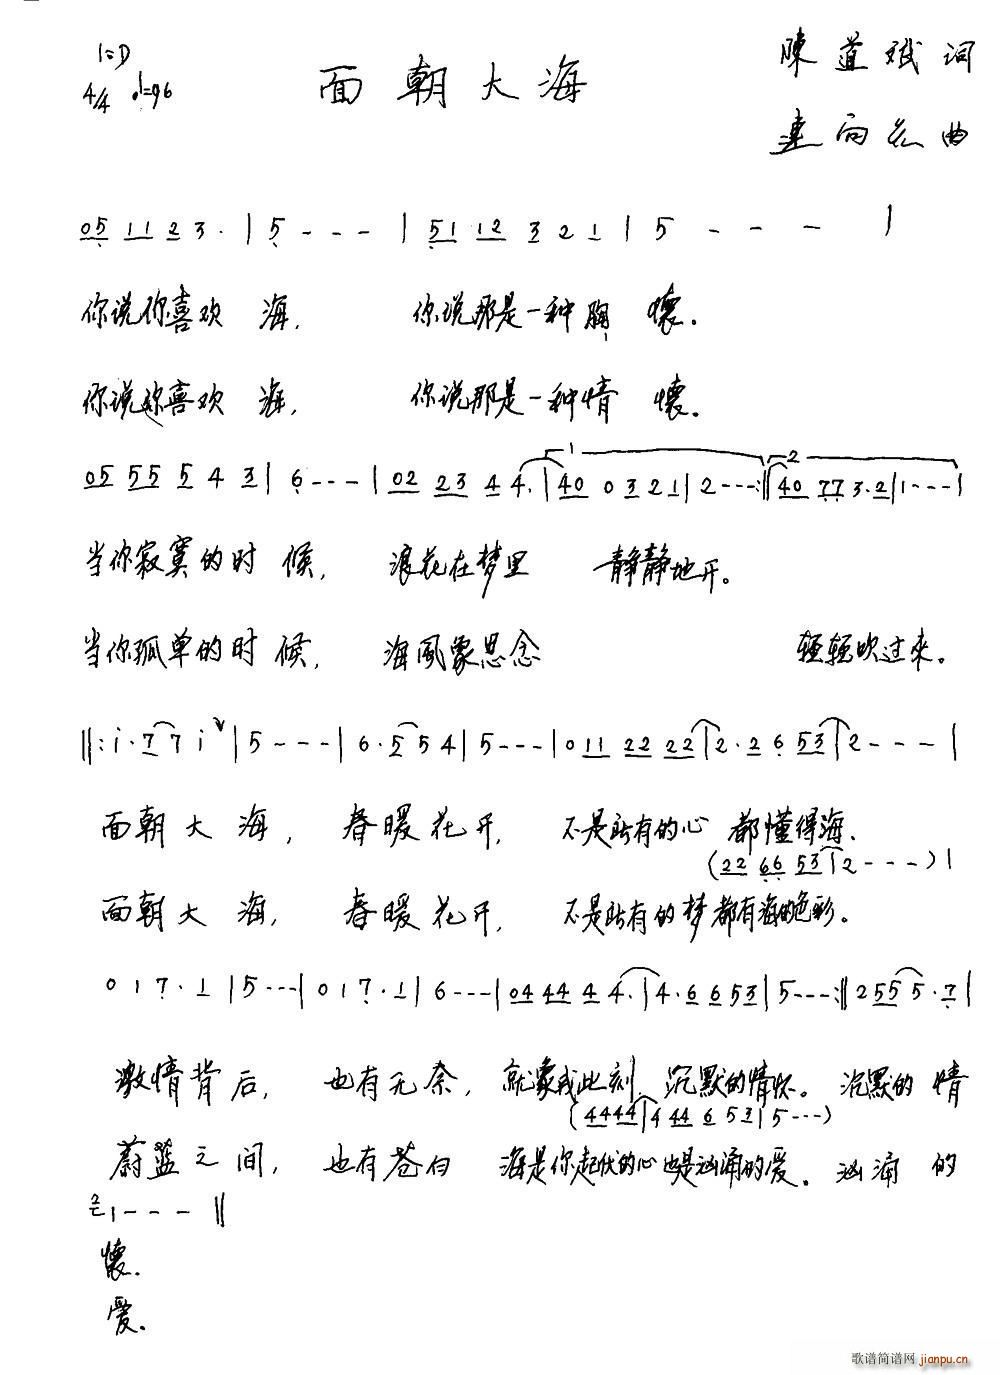 1=D
4/4 ♩=96
面朝大海
陳道斌 词
連向 曲
05 11 2 3 · | 5 - - - | 51 12 3 2 1 | 5 - - - |
你说你喜欢 海, 你说那是一种胸 懷.
你说你喜欢 海, 你说那是一种情 懷.
1 2
05 55 5 4 3 | 6 - - - | 02 23 4 4. | 40 0 3 2 1 | 2 - - - :‖ 40 77 3·2 | 1 - - - |
当你寂寞的时 候, 浪花在梦里 静静地开。
当你孤单的时 候, 海風象思念 轻轻吹过来。
‖: i · 7 7 i | 5 - - - | 6 · 5 5 4 | 5 - - - | 0 11 22 22 | 2·2 6 53 | 2 - - - |
面朝大海, 春暖花开, 不是所有的心 都懂得海.
(22 66 53 | 2 - - - ) |
面朝大海, 春暖花开, 不是所有的梦都有海的色彩。
0 1 7 · 1 | 5 - - - | 0 1 7 · 1 | 6 - - - | 04 44 4 4. | 4·6 6 53 | 5 - - - :‖ 2 55 5·7 |
激情背后, 也有无奈, 就象我此刻 沉默的情怀。 沉默的 情
(44 44 | 4 44 6 53 | 5 - - - )
蔚蓝之间, 也有苍白 海是你起伏的心也是汹涌的爱. 汹涌 的
2 1 - - - ‖
懷.
爱.
歌谱简谱网 jianpu.cn